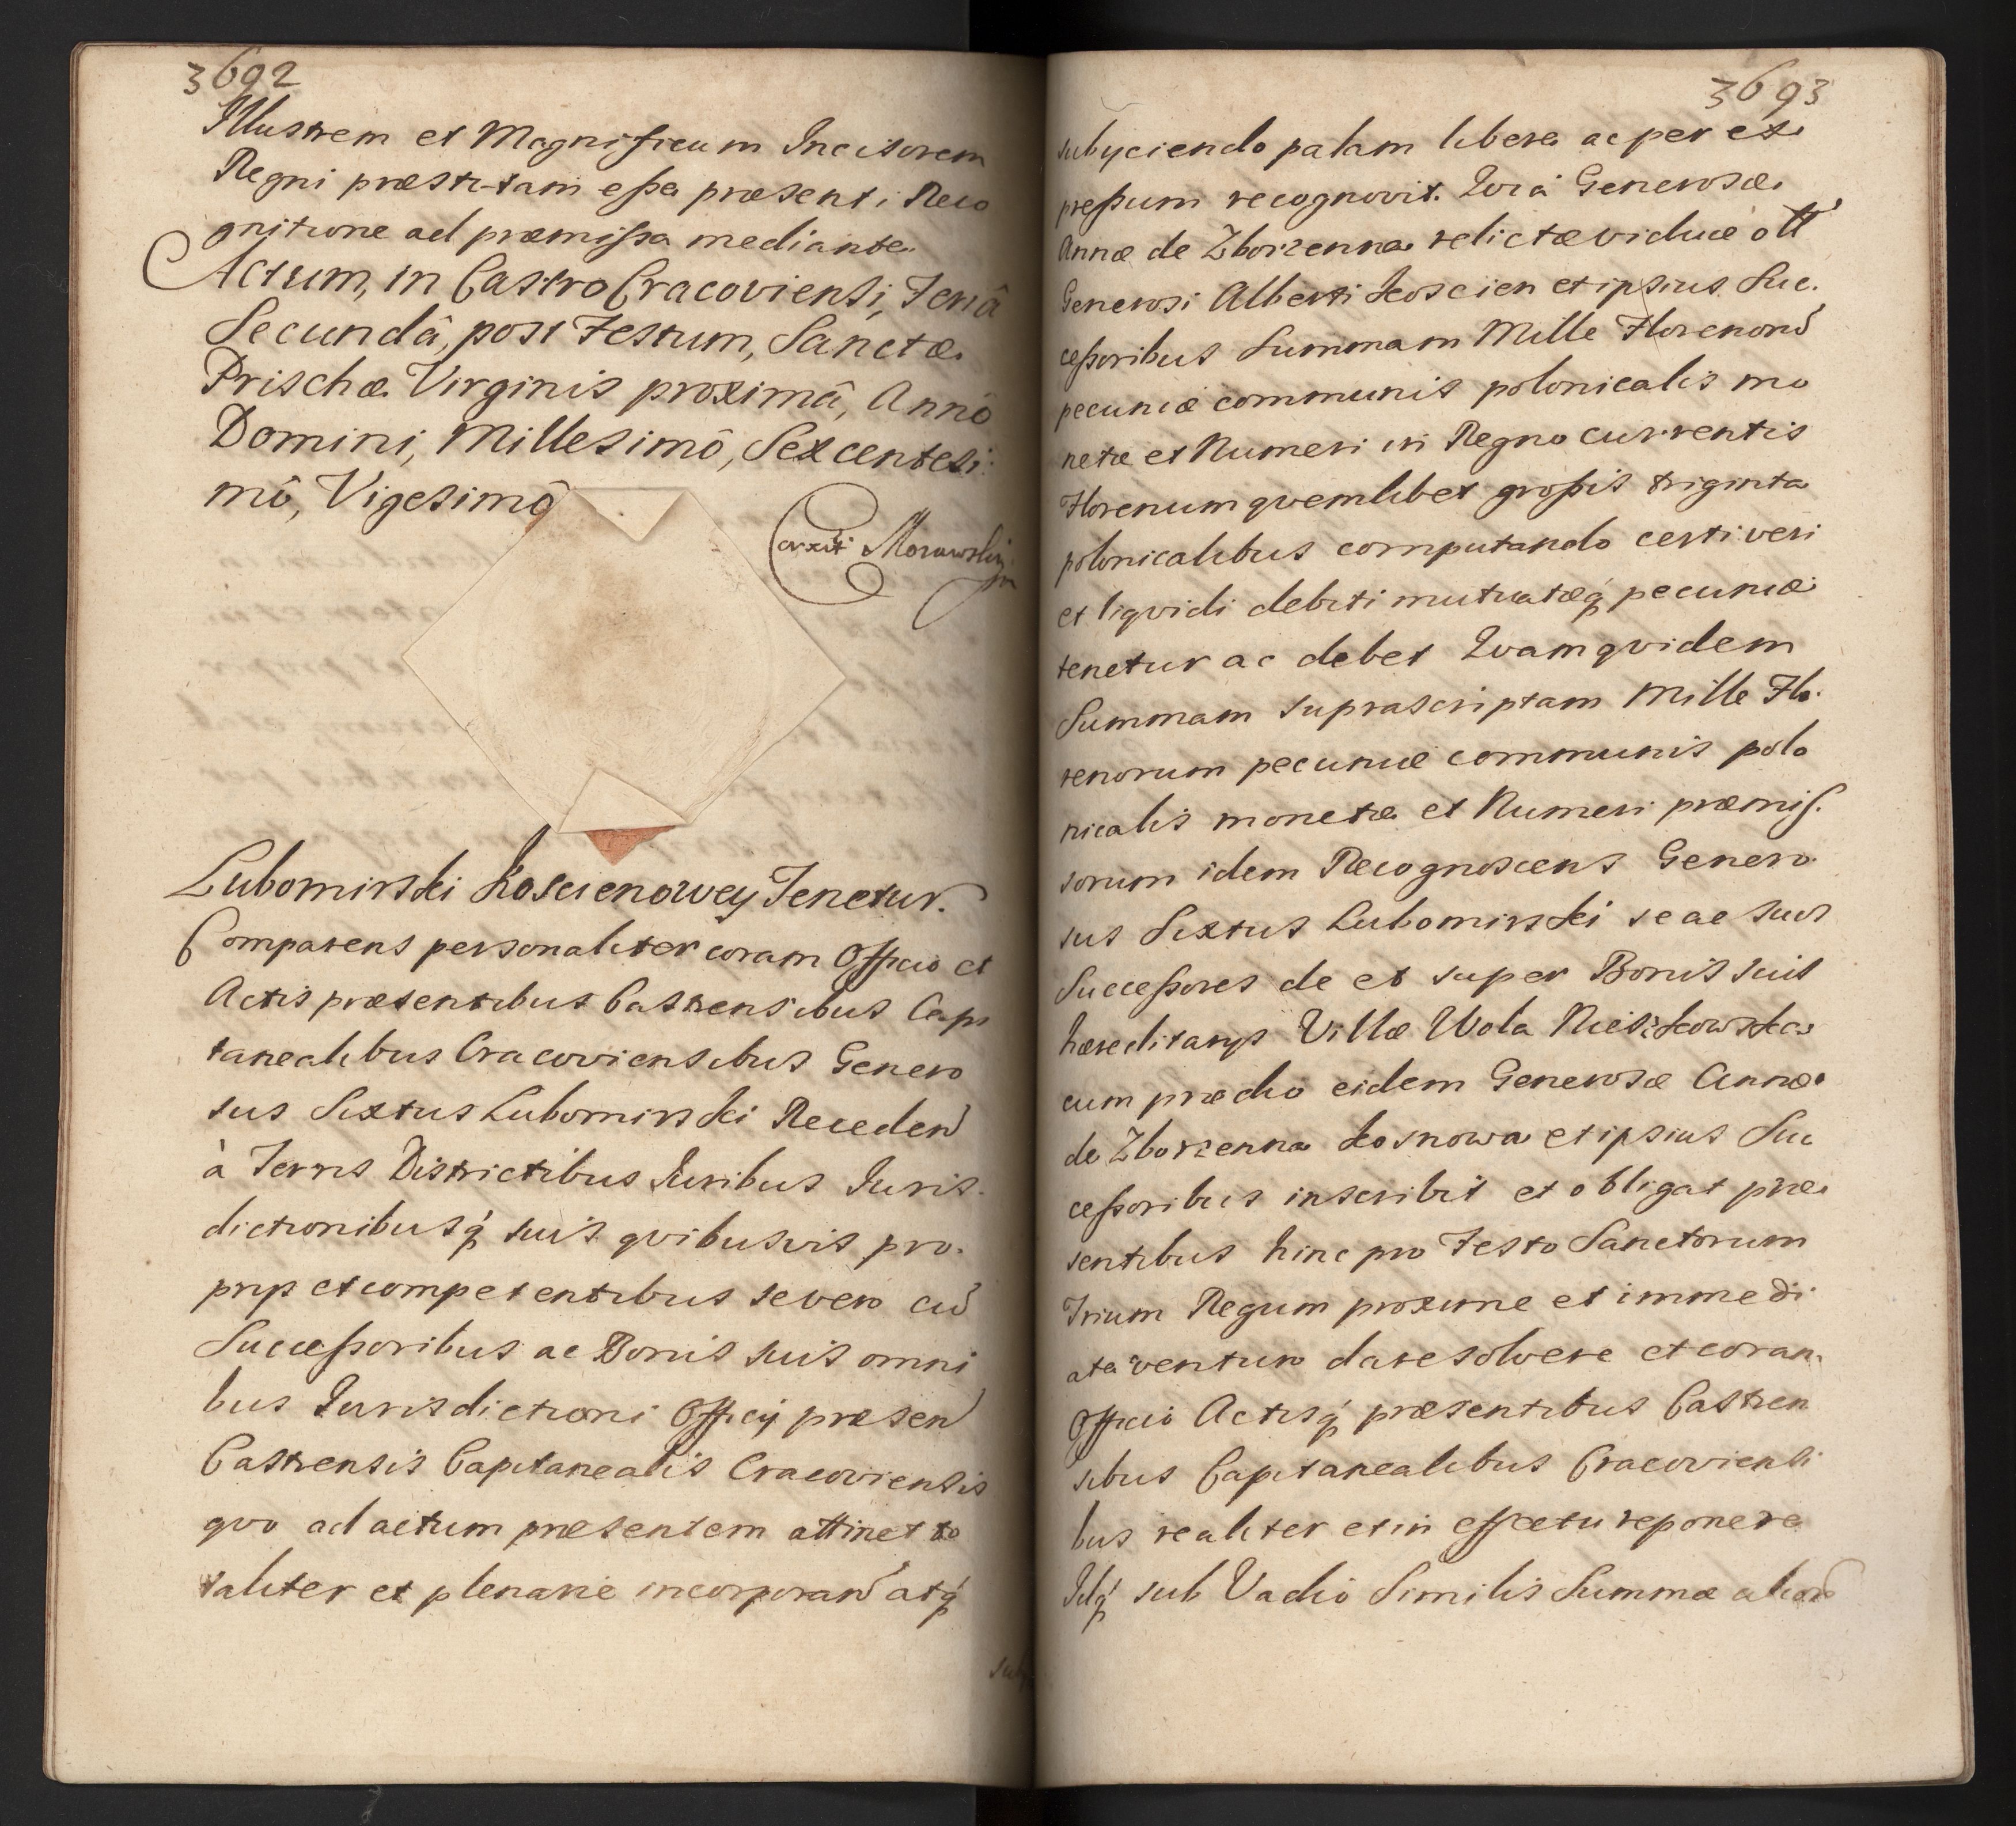 3692
Illustrem et Magnificum Incisorem
Regni præstitam eße præsenti Reco
gnitione ad præmißa mediante
Actum, in Castro Cracoviensi, Feriâ
Secundâ, post Festum, Sanctæ
Prischæ Virginis proximâ, Annô
Domini, Millesimô, Sexcentesi:
mô, Vigesimô
Morawski
Lubomirski Koscienowey Tenetur.
Comparens personaliter coram Officio et
Actis præsentibus Castrensibus Capi
tanealibus Cracoviensibus Genero
sus Sixtus Lubomirski Receden
à Terris Districtibus Iuribus Iuris-
dictionibusq́ suis qvibusvis pro-
prijs et competentibus se vero cū
Succeßoribus ac Bonis suis omni
bus Iurisdictioni Officij præsen
Castrensis Capitanealis Cracoviensis
qvo ad actum præsentem attinet to
taliter et plenarie incorporan atq́
3693
subyciendo palam libere ac per ex
preßum recognovit. Qvia Generosæ
Annæ de Zborzenna relictæ viduæ olt
Generosi Alberti Koscien et ipsius Suc.
ceßoribus Summam Mille Florenorū
pecuniæ communis polonicalis mo
netæ et Numeri in Regno currentis
Florenum qvemlibet großis triginta
polonicalibus computando certi veri
et liqvidi debiti mutuatæq́ pecuniæ
tenetur ac debet Qvam qvidem
Summam suprascriptam Mille Flo-
renorum pecuniæ communis polo
nicalis monetæ et Numeri præmis-
sorum idem Recognoscens Genero
sus Sixtus Lubomirski se ac suos
Succeßores de et super Bonis suis
hæreditarijs Villæ Wola Niesikowska
cum prædio eidem Generosæ Annæ
de Zborzenna Kosnowa et ipsius Suc
ceßoribus inscribit et obligat præ
sentibus hinc pro Festo Sanctorum
Trium Regum proxime et immedi
ate venturo dare solvere et coram
Officio Actisq́ præsentibus Castren
sibus Capitanealibus Cracoviensi
bus realiter et in effectu reponere
Idq́ sub Vadio Similis Summæ